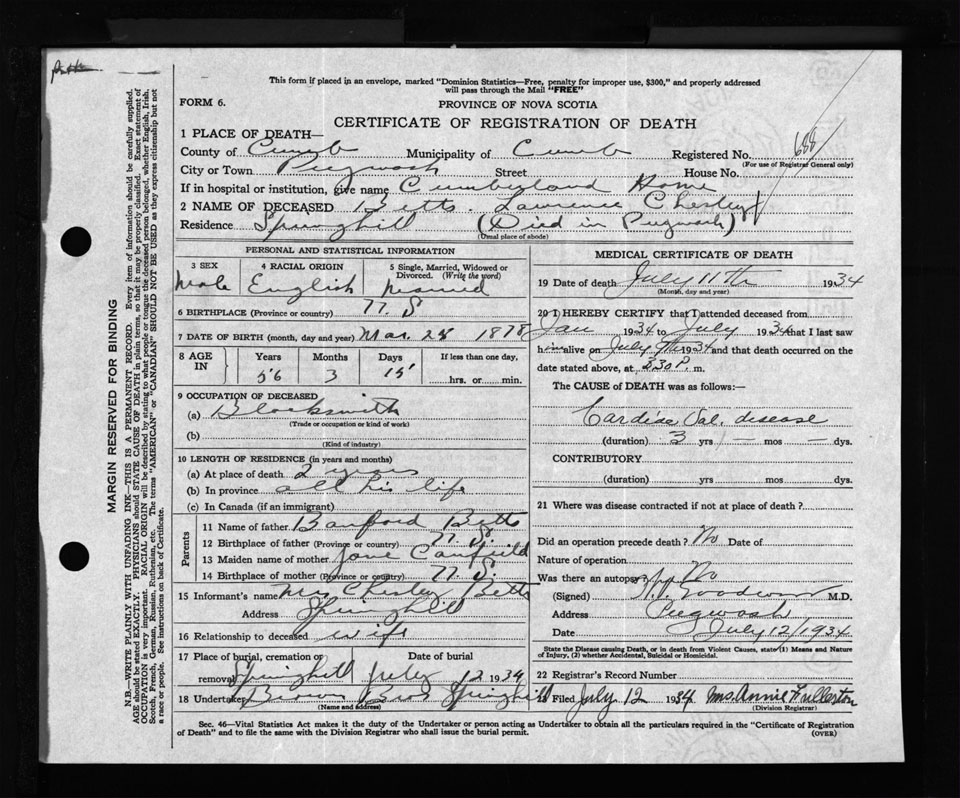 This form if placed in an envelope, marked "Dominion Statistics—Free, penalty for improper use, $300," and properly addressed
will pass through the Mail "FREE"
FORM 6.
PROVINCE OF NOVA SCOTIA
CERTIFICATE OF REGISTRATION OF DEATH
1 PLACE OF DEATH—
County of Cumb Municipality of Cumb Registered No. 688
(For use of Registrar General only)
City or Town Pugwash Street House No.
If in hospital or institution, give name Cumberland Home
2 NAME OF DECEASED Betts. Lawrence Chesley
Residence Springhill (Died in Pugwash)
(Usual place of abode)
PERSONAL AND STATISTICAL INFORMATION
3 SEX 4 RACIAL ORIGIN 5 Single, Married, Widowed or Divorced. (Write the word)
Male English Married
6 BIRTHPLACE (Province or country) N. S
7 DATE OF BIRTH (month, day and year) Mar. 28 1878
8 AGE IN Years Months Days If less than one day,
56 3 15 hrs. or min.
9 OCCUPATION OF DECEASED
(a) Blacksmith
(Trade or occupation or kind of work)
(b)
(Kind of industry)
10 LENGTH OF RESIDENCE (in years and months)
(a) At place of death 2 years
(b) In province all his life
(c) In Canada (if an immigrant)
Parents
11 Name of father Banford Betts
12 Birthplace of father (Province or country) N. S.
13 Maiden name of mother Jane Canfield
14 Birthplace of mother (Province or country) N. S.
15 Informant's name Mrs Chesley Betts
Address Springhill
16 Relationship to deceased wife
17 Place of burial, cremation or removal Springhill Date of burial July 12 1934
18 Undertaker Brown Bros Springhill
(Name and address)
MEDICAL CERTIFICATE OF DEATH
19 Date of death July 11th 1934
(Month, day and year)
20 I HEREBY CERTIFY that I attended deceased from
Jan 1934 to July 1934 that I last saw
him alive on July 1934 and that death occurred on the
date stated above, at 330 P. m.
The CAUSE OF DEATH was as follows:—
Cardiac Val. disease
(duration) 3 yrs — mos — dys.
CONTRIBUTORY
(duration) yrs. mos. dys.
21 Where was disease contracted if not at place of death?
Did an operation precede death? No Date of
Nature of operation
Was there an autopsy? No
(Signed) Goodwin M.D.
Address Pugwash
Date July 12/1934
State the Disease causing Death, or in death from Violent Causes, state (1) Means and
Nature of Injury, (2) whether Accidental, Suicidal or Homicidal.
22 Registrar's Record Number
23 Filed July 12 1934 Mrs. Annie Fullerton
(Division Registrar)
Sec. 46—Vital Statistics Act makes it the duty of the Undertaker or person acting as Undertaker to obtain all the particulars required in the "Certificate of Registration
of Death" and to file the same with the Division Registrar who shall issue the burial permit.
(OVER)
MARGIN RESERVED FOR BINDING
N.B.—WRITE PLAINLY WITH UNFADING INK—THIS IS A PERMANENT RECORD. Every item of information should be carefully supplied.
AGE should be stated EXACTLY. PHYSICIANS should STATE CAUSE OF DEATH in plain terms, so that it may be properly classified. Exact statement of
OCCUPATION is very important. RACIAL ORIGIN will be described by stating to what people or tongue the deceased person belonged, whether English, Irish,
Scotch, French, German, Russian, Ruthenian, etc. The terms "AMERICAN" or "CANADIAN" SHOULD NOT BE USED as they express citizenship but not
a race or people. See instructions on back of Certificate.